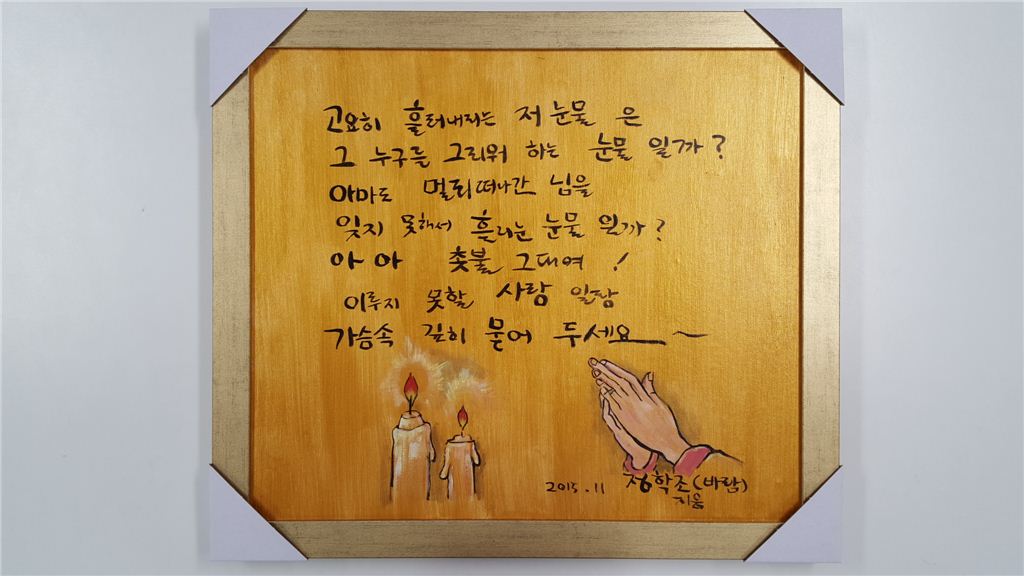 고요히 흘러내리는 저 눈물 은
그 누구를 그리워 하는 눈물 일까?
아마도 멀리떠나간 님을
잊지 못해서 흘리는 눈물 일까?
아 아 촛불 그대여 !
이루지 못할 사랑 일랑
가슴속 깊히 묻어 두세요~
2015.11 정학조(바람)
지음